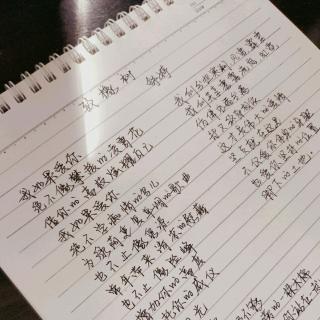 致橡树 舒婷
我如果爱你
绝不像攀援的凌霄花
借你的高枝炫耀自己
我如果爱你
绝不学痴情的鸟儿
为绿荫重复单调的歌曲
也不止像泉源
常年送来清凉的慰藉
也不止像险峰
增加你的高度
衬托你的威仪
我们分担寒潮、风雷、霹雳
我们共享雾霭、流岚、虹霓
仿佛永远分离
却又终身相依
这才是伟大的爱情
坚贞就在这里
不仅爱你伟岸的身躯
也爱你坚持的位置
脚下的土地